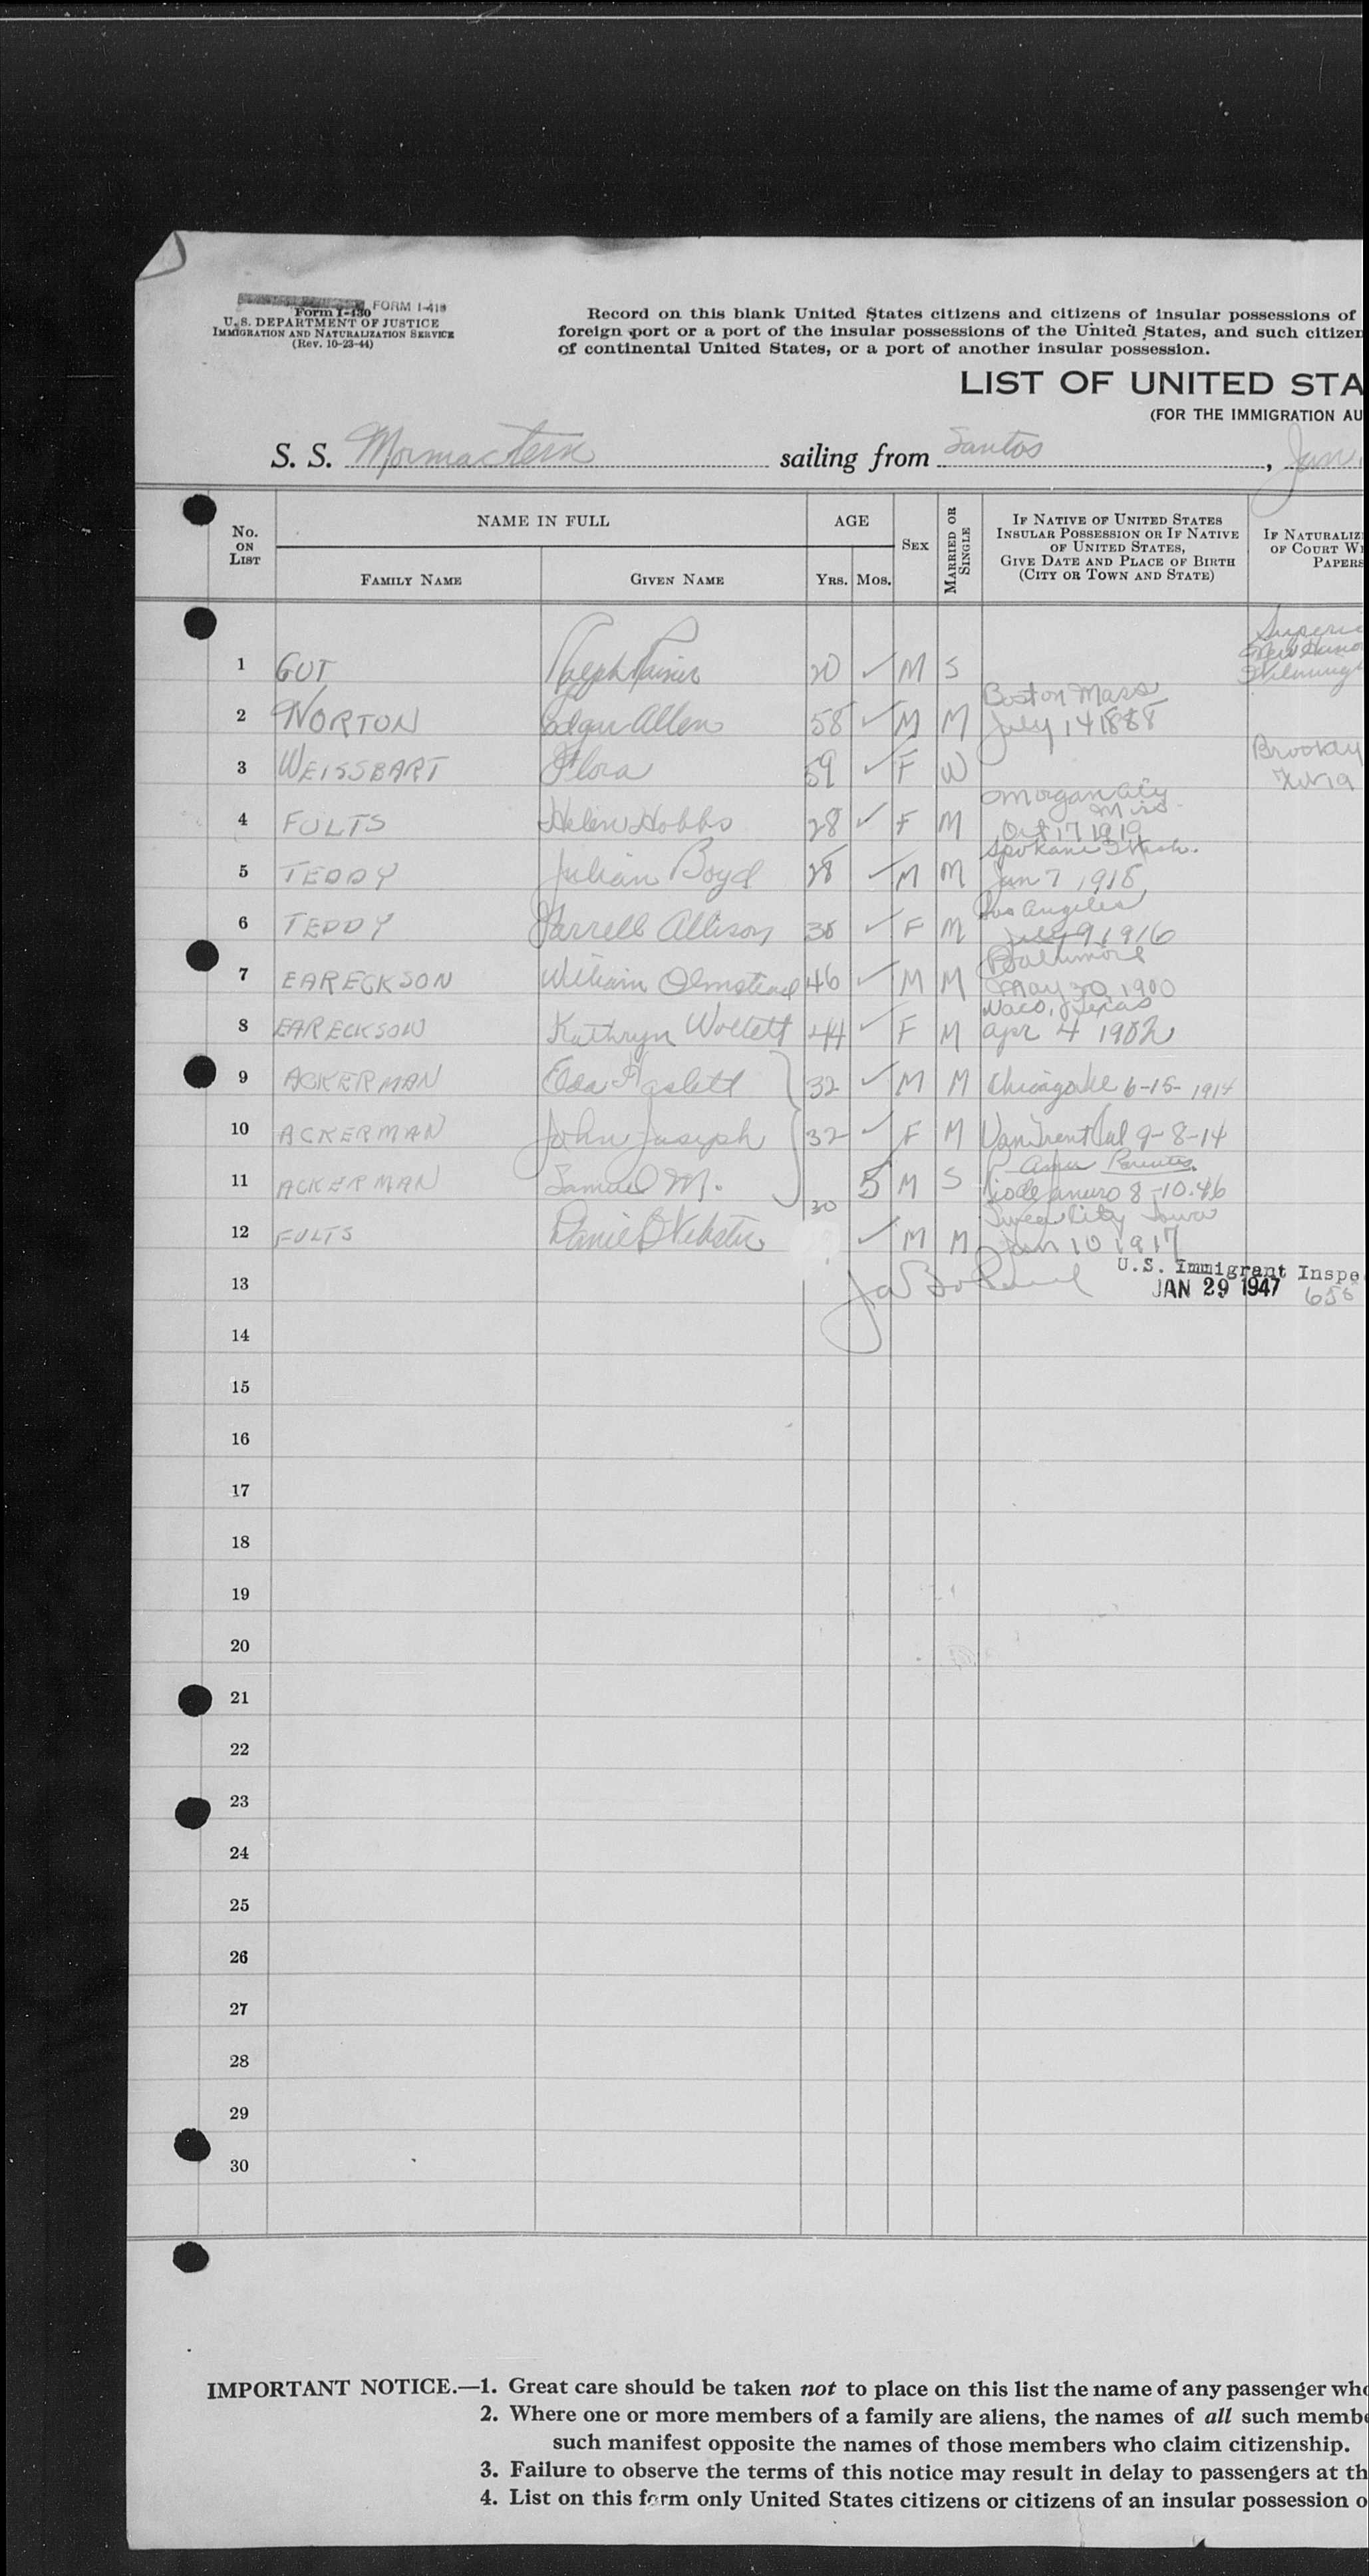 FORM I-418
Form I-430
U. S. DEPARTMENT OF JUSTICE
IMMIGRATION AND NATURALIZATION SERVICE
(Rev. 10-23-44)
Record on this blank United States citizens and citizens of insular possessions of
foreign port or a port of the insular possessions of the United States, and such citizen
of continental United States, or a port of another insular possession.
LIST OF UNITED STA
(FOR THE IMMIGRATION AU
S. S. Mormactern sailing from Santos, Jan.
No. ON LIST
NAME IN FULL
FAMILY NAME
GIVEN NAME
AGE
YRS. MOS.
SEX
MARRIED OR SINGLE
IF NATIVE OF UNITED STATES
INSULAR POSSESSION OR IF NATIVE
OF UNITED STATES,
GIVE DATE AND PLACE OF BIRTH
(CITY OR TOWN AND STATE)
IF NATURALIZ
OF COURT WH
PAPERS
1 GUT Ralph Rainer 20 ✓ M S
2 NORTON Edgar Allen 58 ✓ M M Boston Mass July 14 1888
3 WEISSBART Flora 59 ✓ F W
4 FULTS Helen Hobbs 28 ✓ F M Morgan City Miss Oct 17 1919
5 TEDDY Julian Boyd 28 ✓ M M Spokane Wash. Jan 7 1918
6 TEDDY Farrell Allison 30 ✓ F M Los Angeles July 9 1916
7 EARECKSON William Olmstead 46 ✓ M M Baltimore May 30 1900
8 EARECKSON Kathryn 44 ✓ F M Waco, Texas Apr 4 1902
9 ACKERMAN Haslett 32 ✓ M M Chicago Ill 6-15-1914
10 ACKERMAN John Joseph 32 ✓ F M Cal 9-8-14
11 ACKERMAN Samuel M. 5 M S Parents Rio de Janeiro 8-10-46
12 FULTS Daniel Webster 30 ✓ M M City Iowa Jan 10 1917
13 U.S. Immigrant Inspe
JAN 29 1947
14
15
16
17
18
19
20
21
22
23
24
25
26
27
28
29
30
IMPORTANT NOTICE.—1. Great care should be taken not to place on this list the name of any passenger who
2. Where one or more members of a family are aliens, the names of all such membe
such manifest opposite the names of those members who claim citizenship.
3. Failure to observe the terms of this notice may result in delay to passengers at th
4. List on this form only United States citizens or citizens of an insular possession o